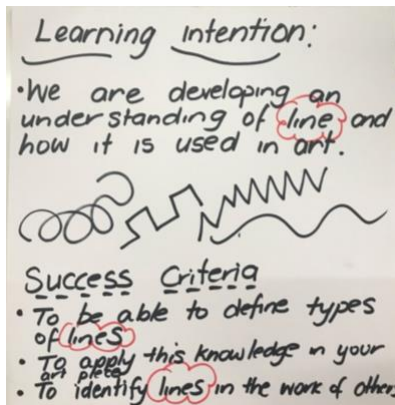 Learning intention:
• We are developing an
understanding of line and
how it is used in art.
Success Criteria
• To be able to define types
of lines
• To apply this knowledge in your
art piece
• To identify lines in the work of others